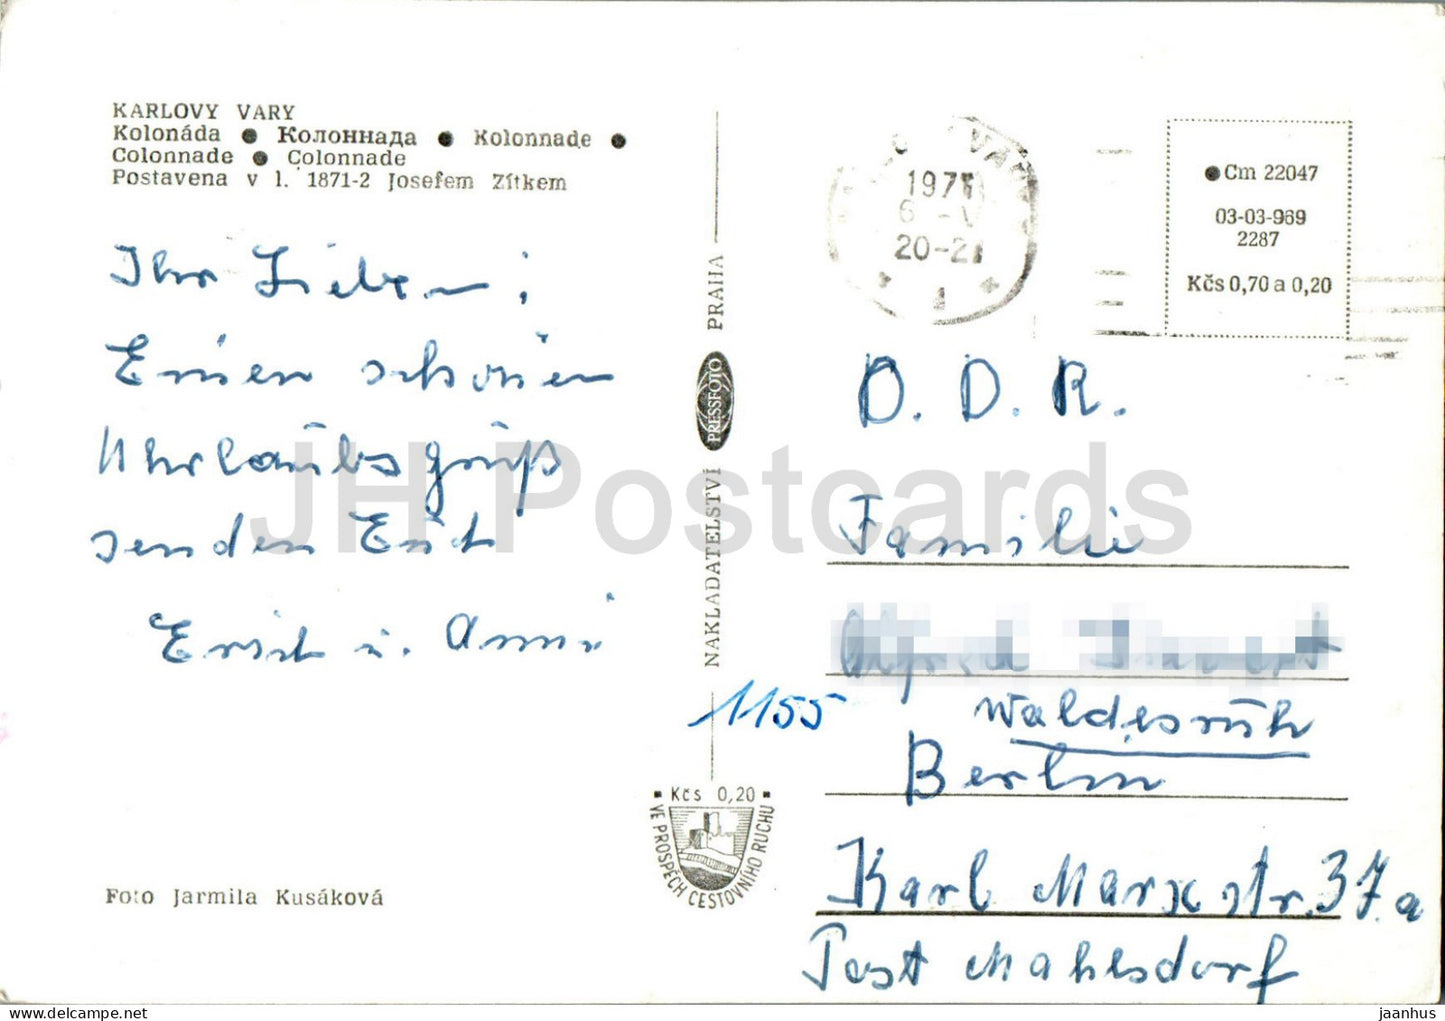 KARLOVY VARY
Kolonáda ● Колоннада ● Kolonnade ●
Colonnade ● Colonnade
Postavena v l. 1871-2 Josefem Zítkem
Ihr Lieben!
Einen schönen
Uhrlaubsgruß
senden Euch
Erich u. Anni
Foto Jarmila Kusáková
NAKLADATELSTVÍ PRESSFOTO PRAHA
1155
Kčs 0,20
VE PROSPĚCH CESTOVNÍHO RUCHU
VARY
197
20-21
1
● Cm 22047
03-03-969
2287
Kčs 0,70 a 0,20
D. D. R.
Familie
Waldesruh
Berlin
Karl Marx str. 37.a
Post Mahlsdorf
JH Postcards
jaanhus
delcampe.net